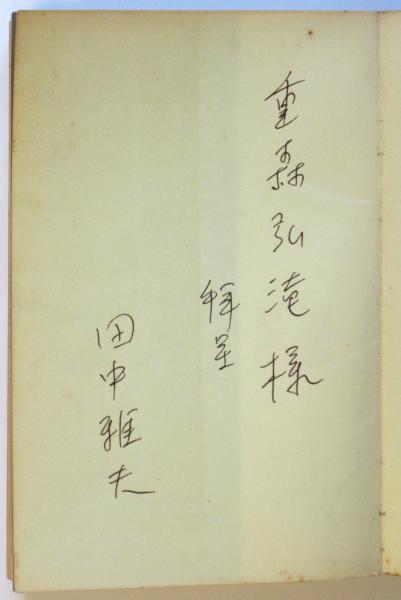 重森弘淹様
拝呈
田中雅夫